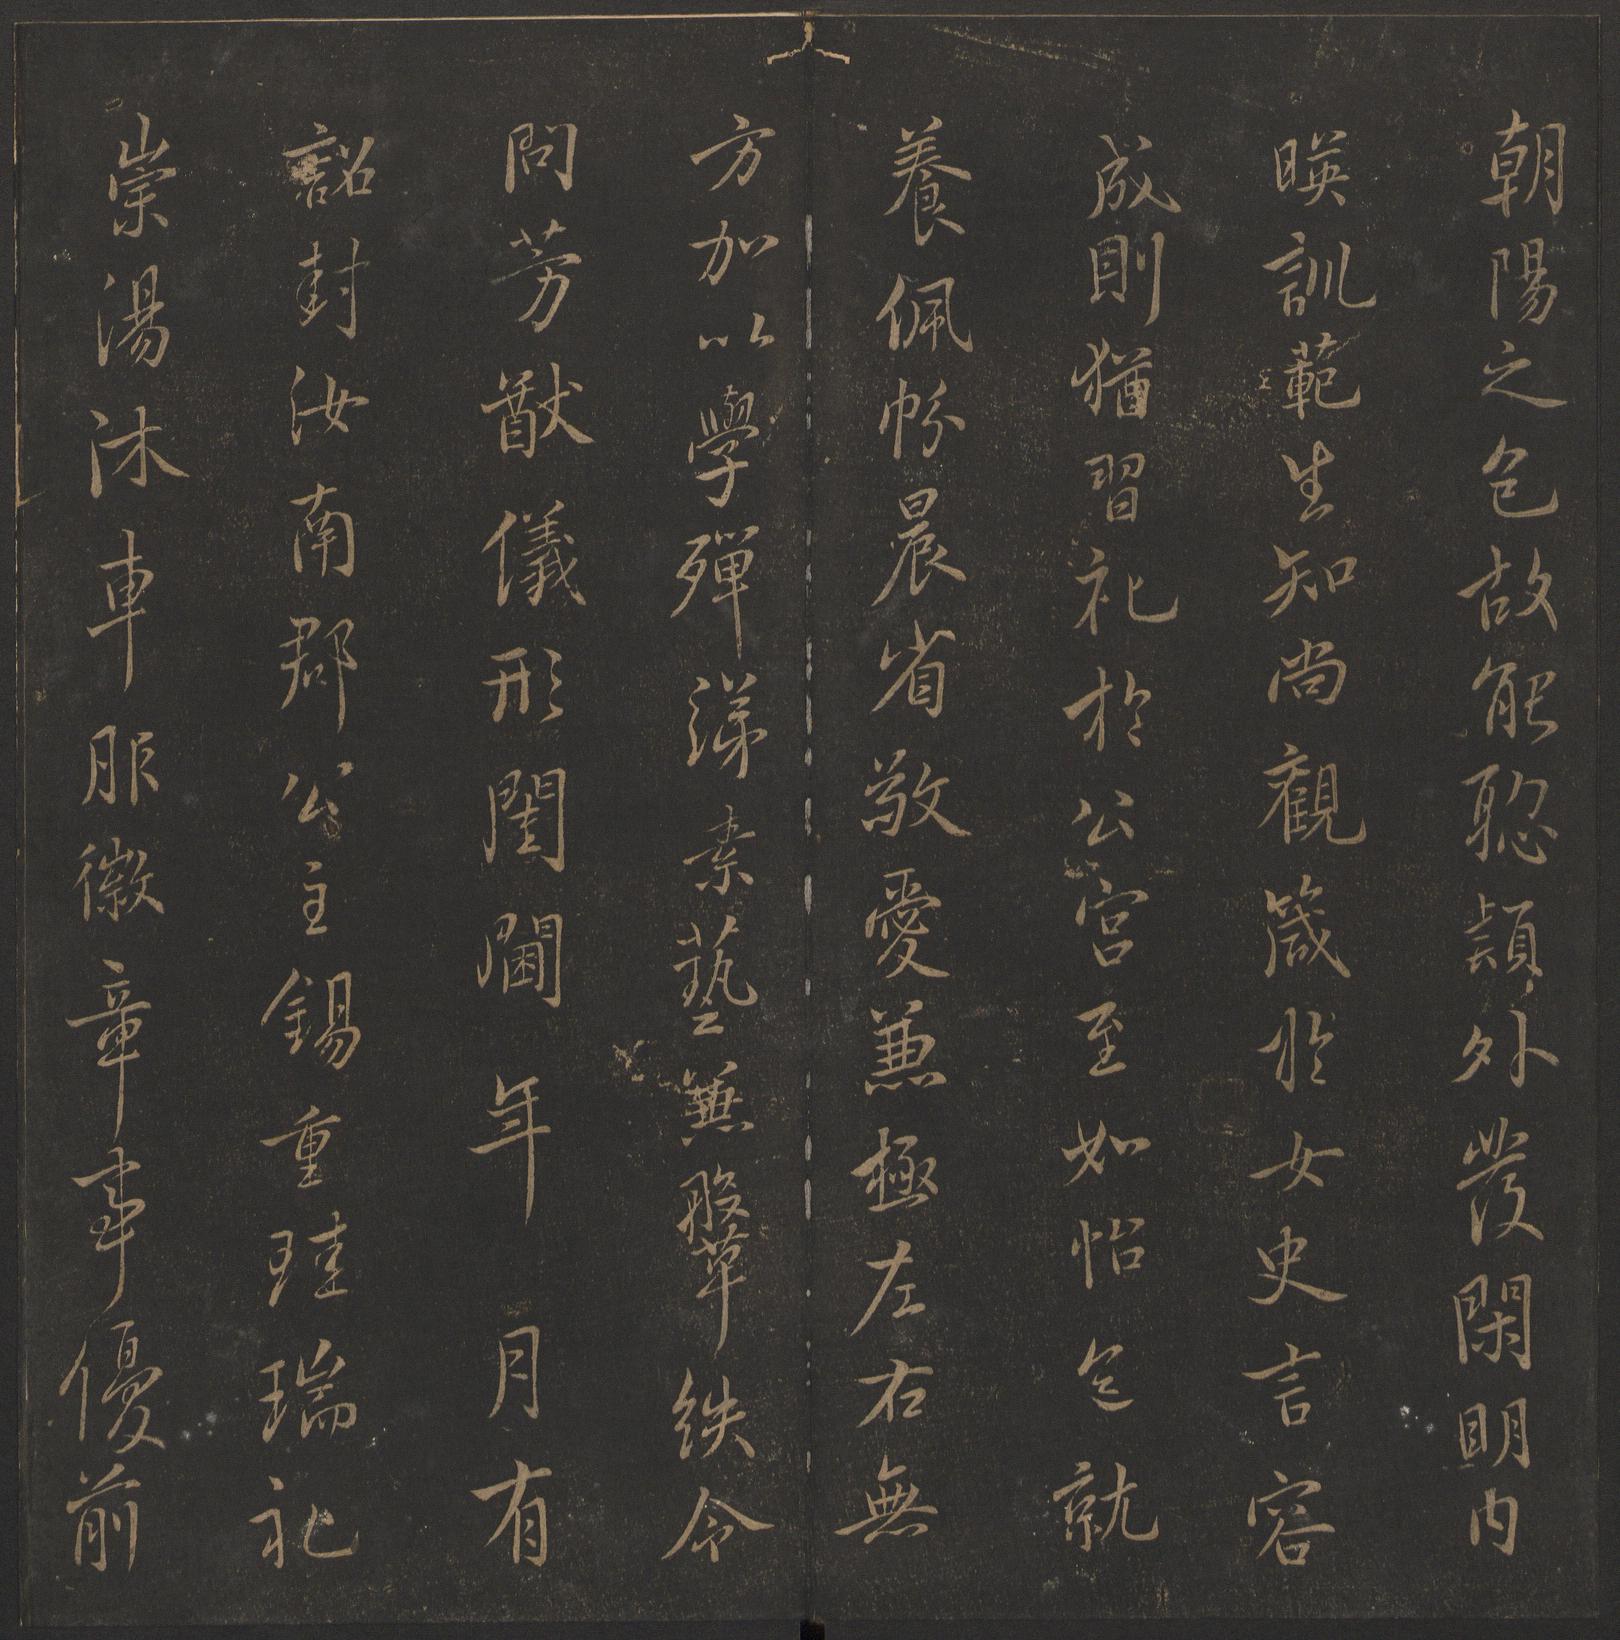 朝陽之色故能聡穎外發閑明內
暎訓範生知尚觀箴於女史言容
成則猶習礼於公宮至如怡色就
養佩帉晨省敬愛兼極左右無
方加以學殫綈素藝兼鞶紩令
問芳猷儀形閨閫年月有
詔封汝南郡公主錫重珪瑞礼
崇湯沐車服徽章事優前